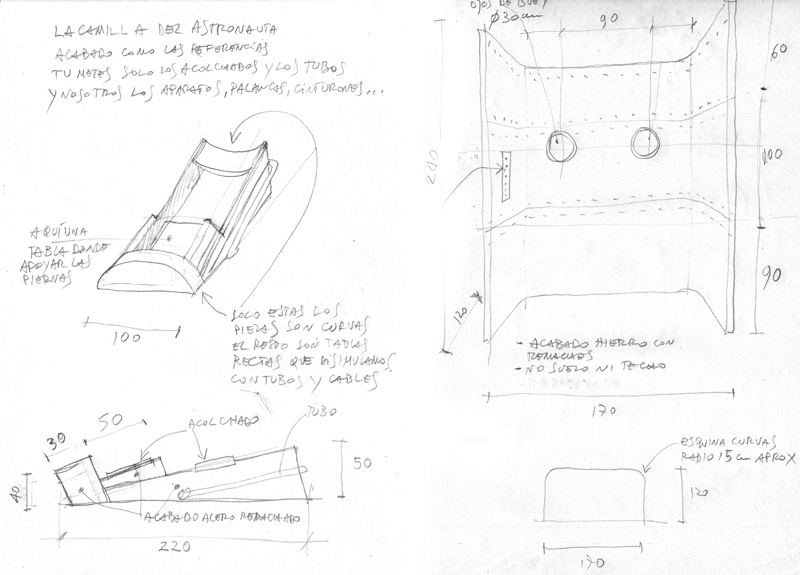 LA CAMILLA DEL ASTRONAUTA
ACABADO COMO LAS REFERENCIAS
TU METES SOLO LOS ACOLCHADOS Y LOS TUBOS
Y NOSOTROS LOS APARATOS, PALANCAS, CINTURONES...
AQUI UNA
TABLA DONDE
APOYAR LAS
PIERNAS
100
SOLO ESTAS DOS
PIEZAS SON CURVAS
EL RESTO SON TABLAS
RECTAS QUE DISIMULAMOS
CON TUBOS Y CABLES
30
50
ACOLCHADO
TUBO
40
50
ACABADO ACERO REMACHADO
220
OJOS DE BUEY
Ø30cm
90
60
240
100
90
120
- ACABADO HIERRO CON
REMACHES
- NO SUELO NI TECHO
170
ESQUINA CURVAS
RADIO 15 cm APROX
120
170